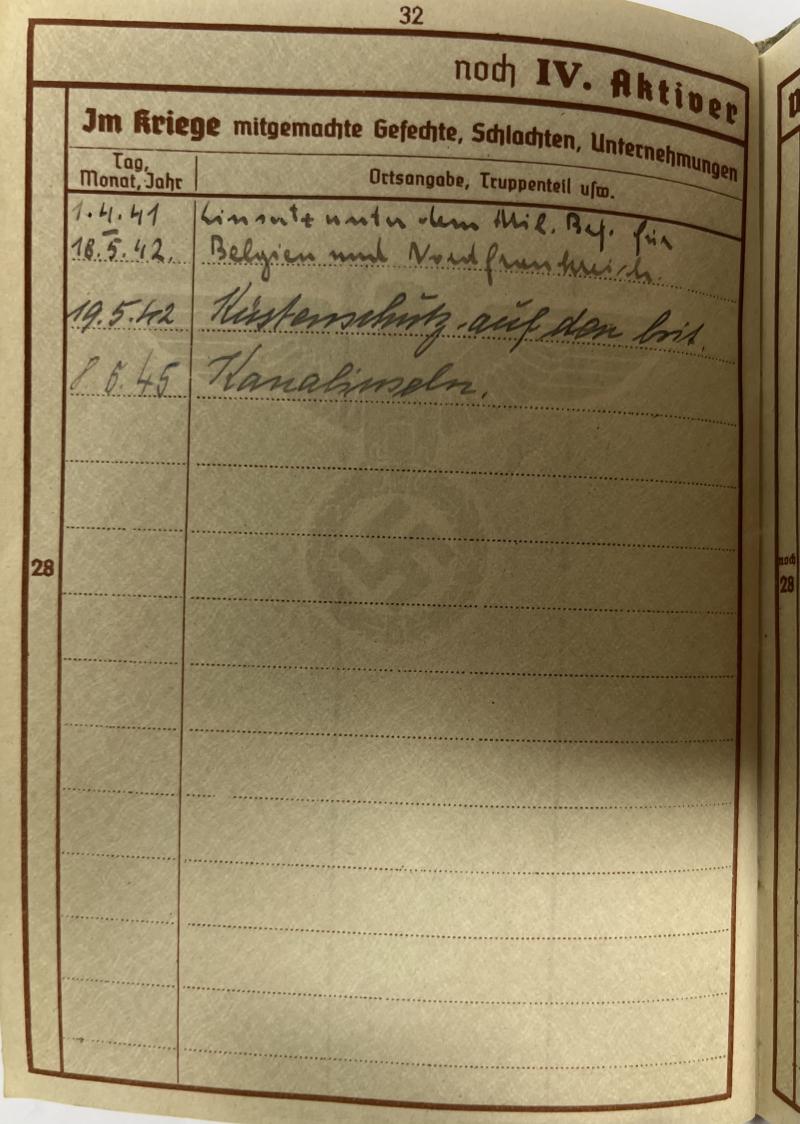 32
noch IV. Aktiver
Im Kriege mitgemachte Gefechte, Schlachten, Unternehmungen
Tag,
Monat, Jahr
Ortsangabe, Truppenteil usw.
1.4.41
Einsatz unter dem Mil. Bef. für
18.5.42.
Belgien und Nordfrankreich.
19.5.42
Küstenschutz auf den brit.
8.6.45
Kanalinseln.
28
noch
28